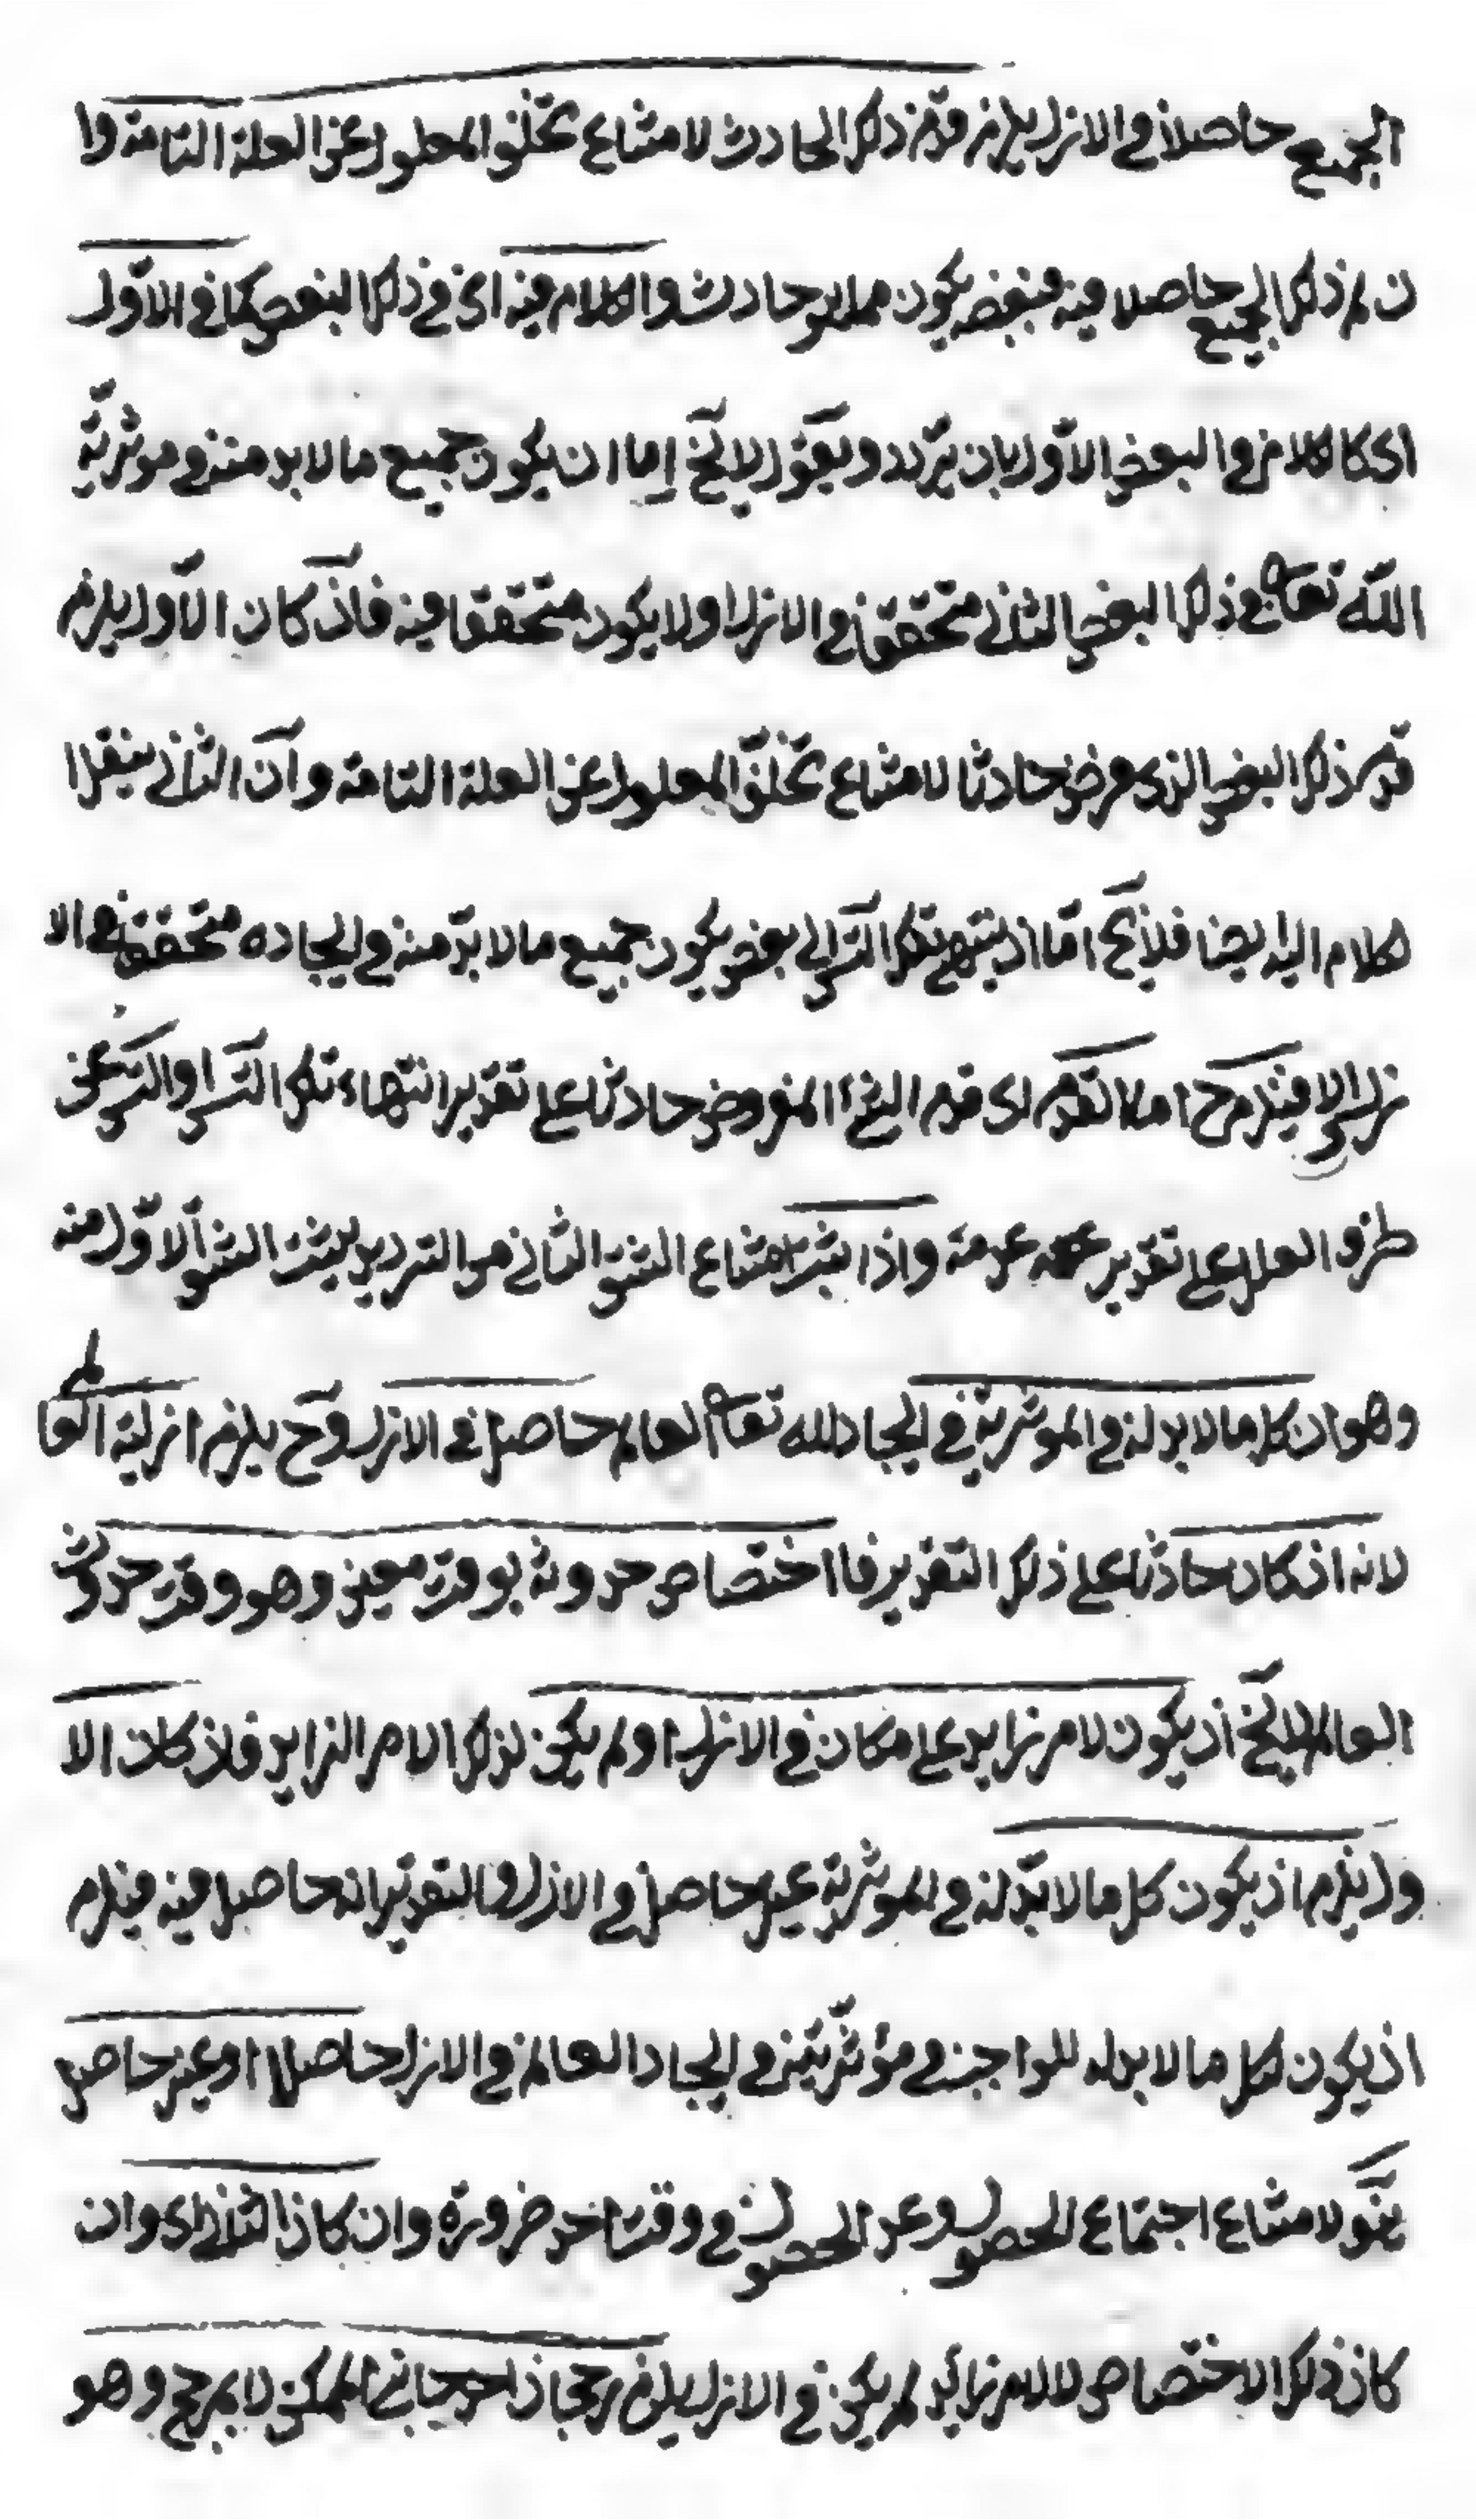 الجميع حاصلا في الازل يلزم قدم ذلك الحادث لامتناع تخلف المعلول عن العلة التامة وا
ن لم ذلك الجميع حاصلا فيه فبعضه يكون مما به حادث والكلام فيه اى في ذلك البعض كما في الاول
اى كالكلام في البعض الاول بان يردد ويقول لا يخ اما ان يكون جميع ما لا بد منه في موثرية
الله تعالى في ذلك البعض الثاني متحققا في الازل او لا يكون متحققا فيه فاذ كان الاول يلزم
قدم ذلك البعض الذى فرض حادثا لامتناع تخلف المعلول عن العلة التامة وان الثاني ينقل ا
لكلام اليه ايضا فلا يخ اما ان ينتهي تلك التس الى بعض يكون جميع ما لا بد منه في ايجاده متحققا في الا
زل او لا فيلزم ح اما لقدم اى قدم البعض المفروض حادثا على تقدير انتهاء تلك التس او التس عن
طرف العلل على تقدير عدمه واذا ثبت امتناع الشق الثاني من الترديد يثبت الشق الاول منه
وهو ان كل ما لا بد له في الموثرية في ايجاد الله تعالى العالم حاصل في الازل وح يلزم ازلية العا لم
لانه اذ كان حادثا على ذلك التقدير فاما اختصاص حدوثه بوقت معين وهو وقت حدوث
العالم لا يخ ان يكون لامر زايد على ما كان في الازل او لم يكن لذلك الامر الزايد فان كان الا
ول يلزم ان يكون كل ما لا بد له في الموثرية غير حاصل في الازل والتقدير انه حاصل فيه فيلزم
ان يكون كل ما لا بد له للواجب في مؤثريته في ايجاد العالم في الازل حاصلا او غير حاصل
لامتناع اجتماع الحصول وعدم الحصول في وقت احد ضرورة وان كان الثاني اى وان
كان ذلك الاختصاص لا لامر زائد لم يكن في الازل يلزم رجحان احد جانبي الممكن لا بمرجح وهو